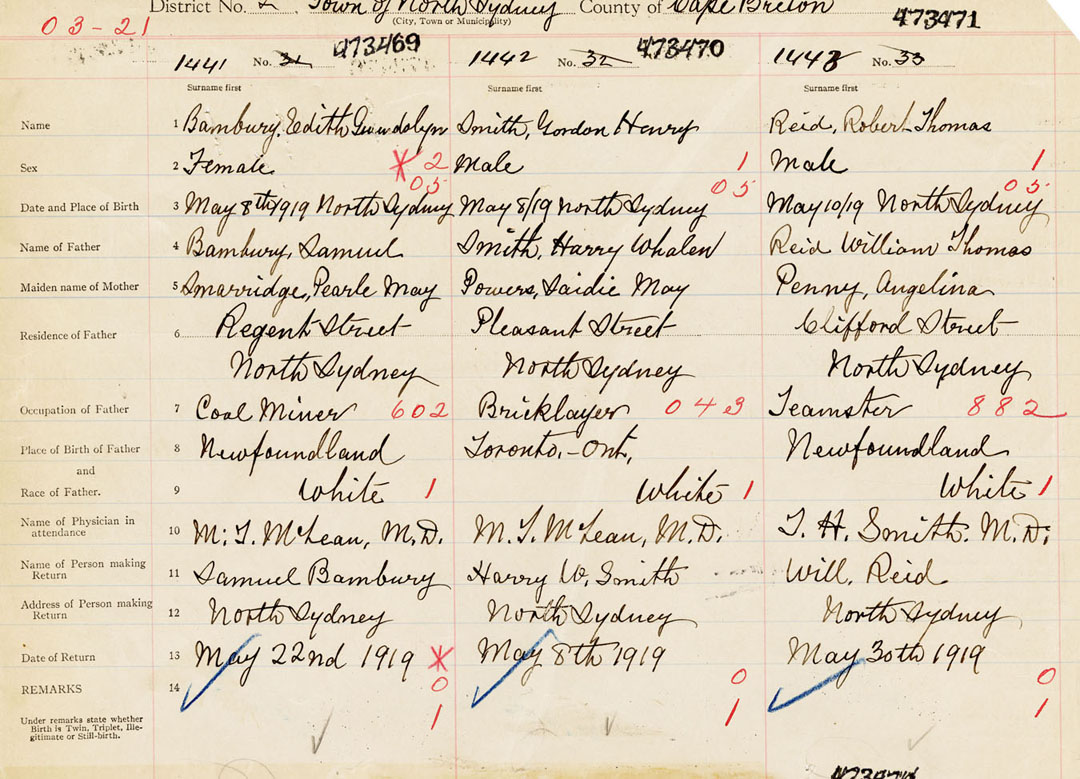 District No. 2 Town of North Sydney County of Cape Breton
(City, Town or Municipality)
03-21
473469 473470 473471
1441 No. 31 1442 No. 32 1443 No. 33
Surname first Surname first Surname first
Name 1 Bambury, Edith Gwendolyn Smith, Gordon Henry Reid, Robert Thomas
Sex 2 Female 2 Male 1 Male 1
05 05 05
Date and Place of Birth 3 May 8th/1919 North Sydney May 8/19 North Sydney May 10/19 North Sydney
Name of Father 4 Bambury, Samuel Smith, Harry Whalen Reid William Thomas
Maiden name of Mother 5 Smarridge, Pearle May Powers, Saidie May Penny, Angelina
Residence of Father 6 Regent Street Pleasant Street Clifford Street
North Sydney North Sydney North Sydney
Occupation of Father 7 Coal Miner 602 Bricklayer 043 Teamster 882
Place of Birth of Father 8 Newfoundland Toronto,-Ont, Newfoundland
and
Race of Father. 9 White 1 White 1 White 1
Name of Physician in
attendance 10 M. T. McLean, M.D. M. T. McLean, M.D. T. H. Smith. M.D.
Name of Person making
Return 11 Samuel Bambury Harry W. Smith Will. Reid
Address of Person making
Return 12 North Sydney North Sydney North Sydney
Date of Return 13 May 22nd 1919 May 8th 1919 May 30th 1919
REMARKS 14 0 0 0
1 1 1
Under remarks state whether
Birth is Twin, Triplet, Ille-
gitimate or Still-birth.